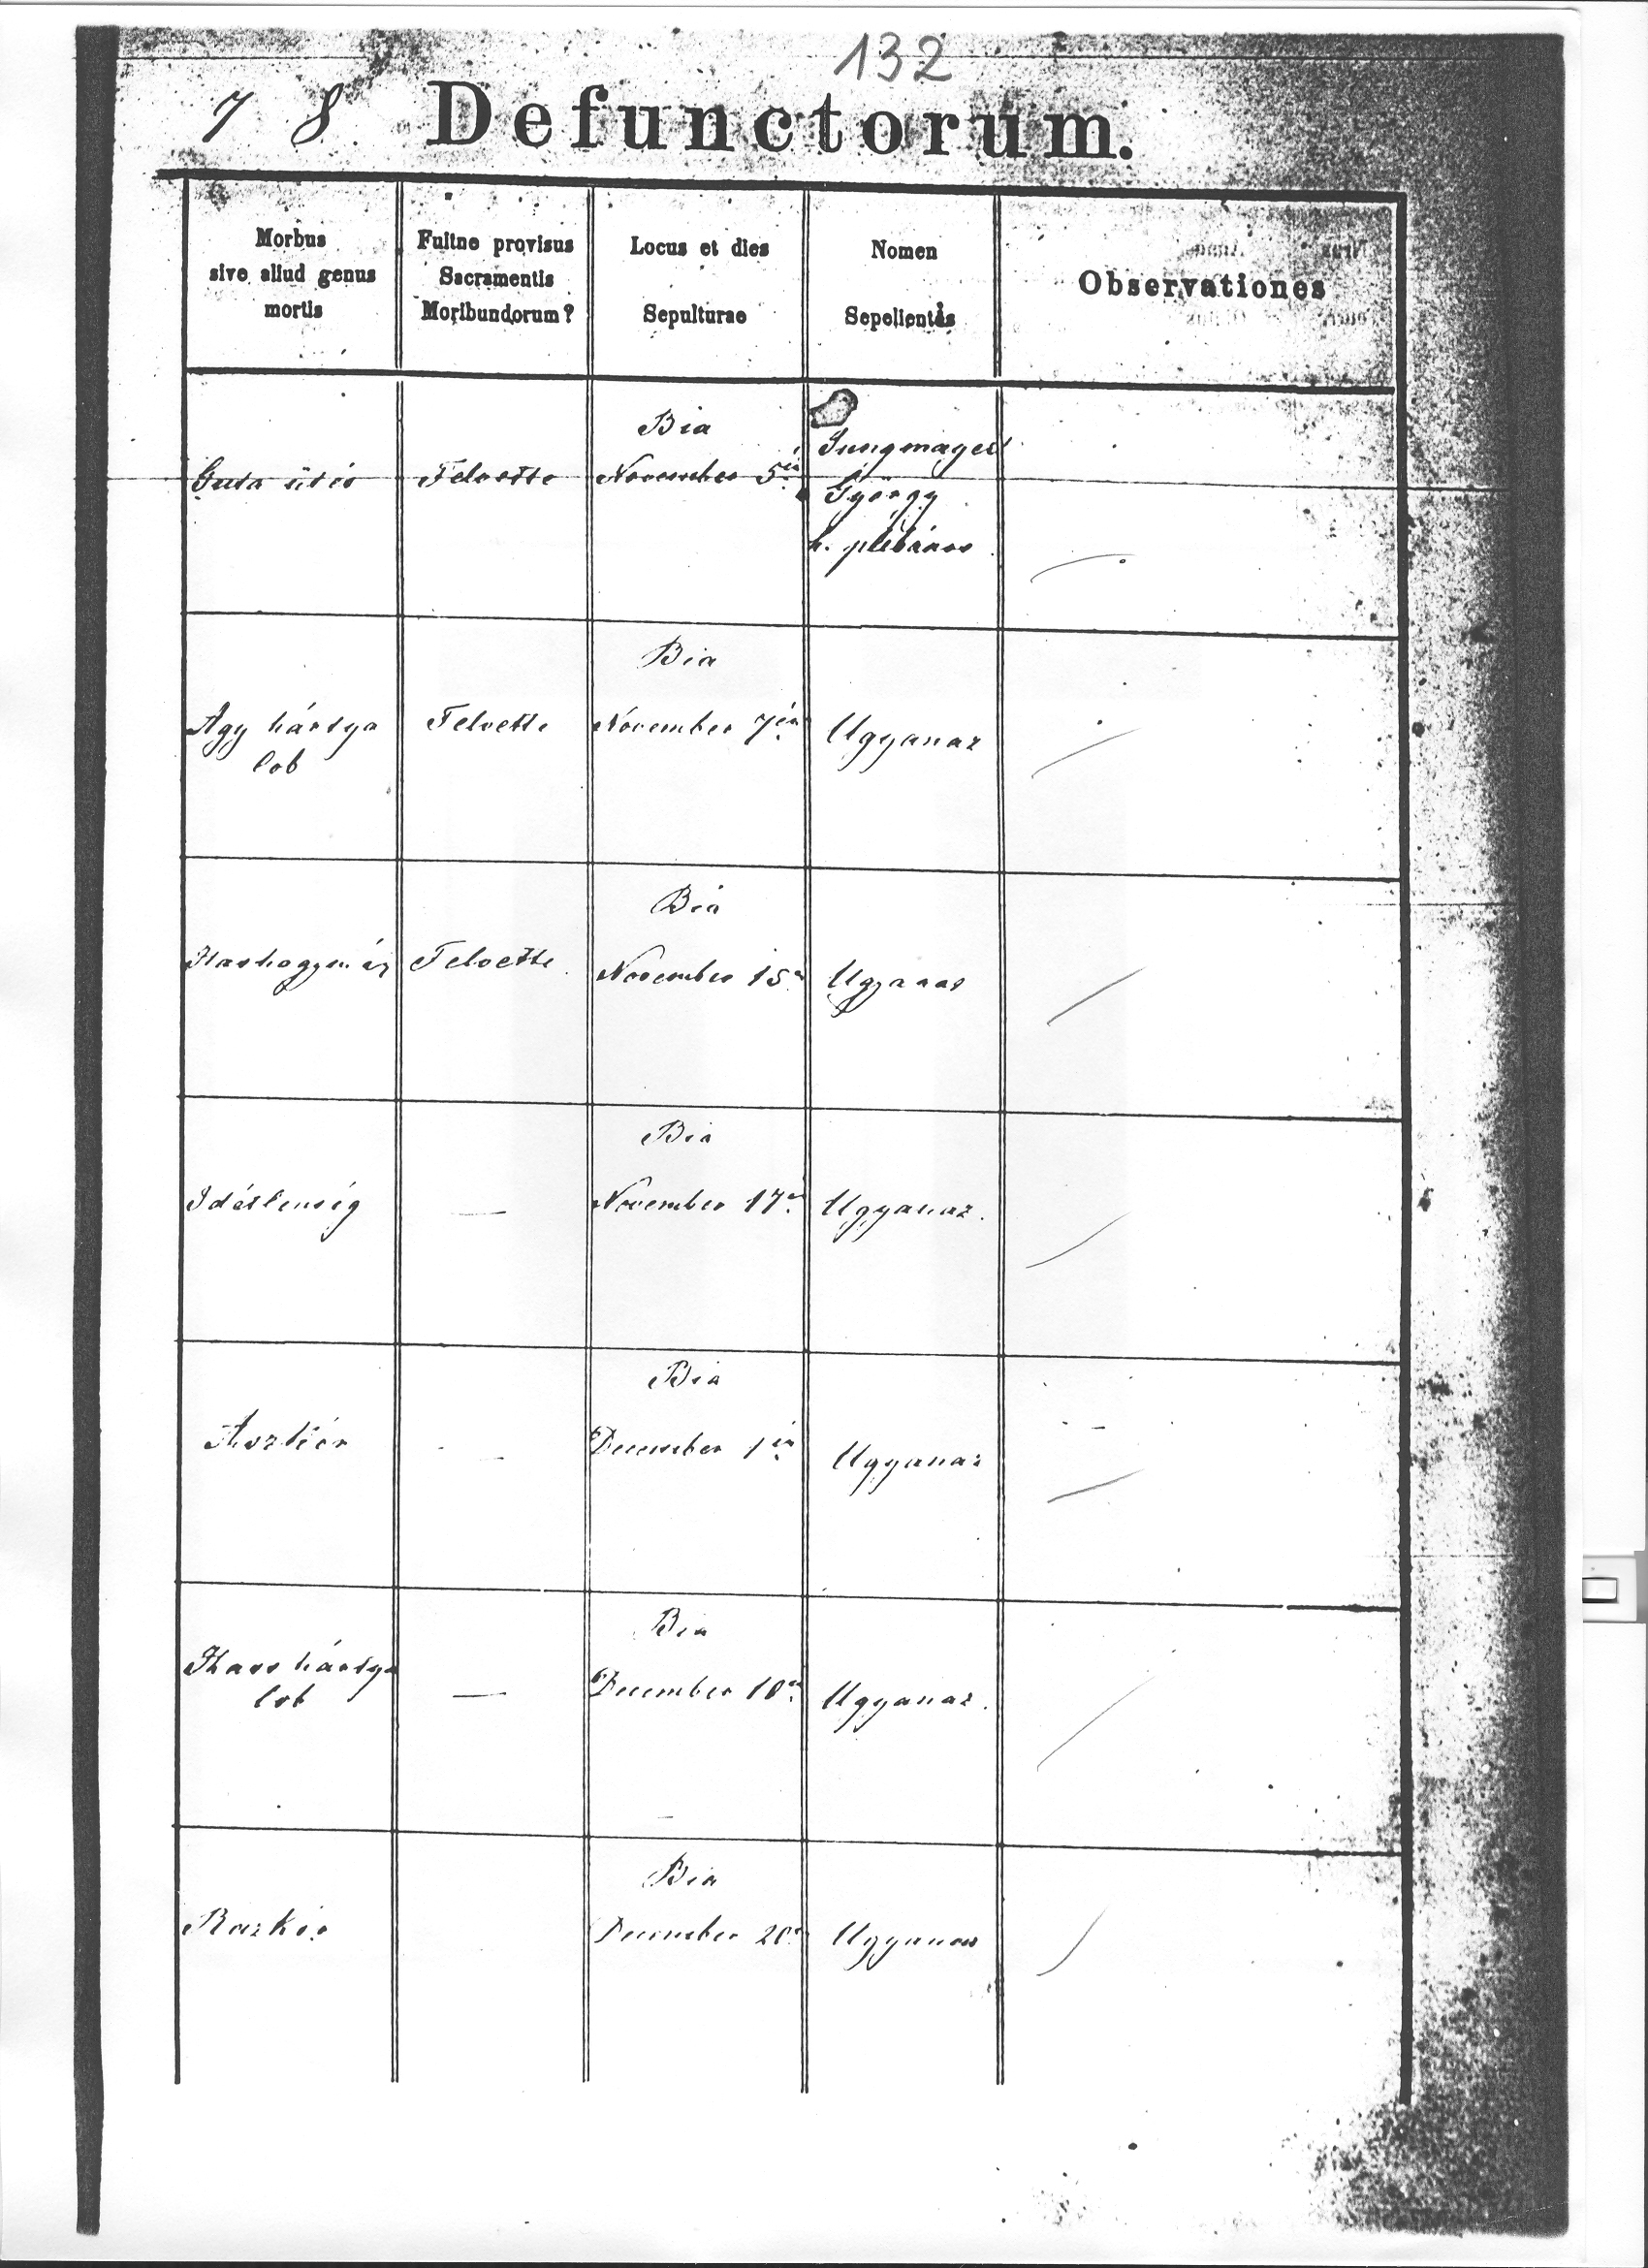 132
7 8 Defunctorum.
Morbus
sive aliud genus
mortis
Fuitne provisus
Sacramentis
Moribundorum?
Locus et dies
Sepulturae
Nomen
Sepelientis
Observationes
Guta ütés
Felvette
Bia
November 5én
Jungmayer
György
h. plébános
Agy hártya
lob
Felvette
Bia
November 7én
Ugyanaz
Hashagymáz
Felvette
Bia
November 15n
Ugyanaz
Idétlenség
—
Bia
November 17n
Ugyanaz.
Aszkór
—
Bia
December 1én
Ugyanaz
Hass hártya
lob
—
Bia
December 10n
Ugyanaz.
Bia
December 20n
Ugyanaz